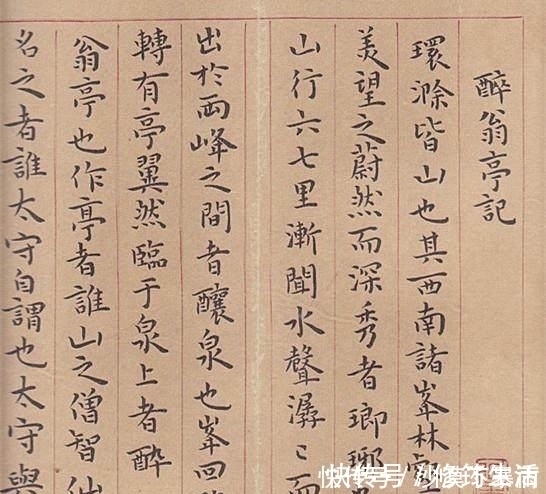 醉翁亭記
環滁皆山也其西南諸峯林
美望之蔚然而深秀者瑯琊
山行六七里漸聞水聲潺〻而
出於兩峰之間者釀泉也峯回
轉有亭翼然臨于泉上者醉
翁亭也作亭者誰山之僧智
名之者誰太守自謂也太守與
快转号/